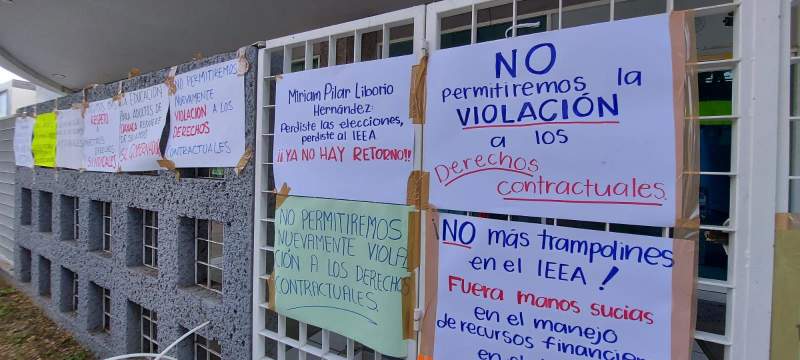 RESPETO
A
DERECHOS
SINDICALES
A EDUCACIÓN
PARA ADULTOS DE
OAXACA REQUIERE
SU GOBERNADOR
NO PERMITIREMOS
NUEVAMENTE
VIOLACIÓN A LOS
DERECHOS
CONTRACTUALES
Miriam Pilar Liborio
Hernández:
Perdiste las elecciones,
perdiste al IEEA
¡¡YA NO HAY RETORNO!!
NO PERMITIREMOS
NUEVAMENTE VIOLA-
CIÓN A LOS DERECHOS
CONTRACTUALES.
NO
permitiremos la
VIOLACIÓN
a los
Derechos
contractuales.
NO más trampolines
en el IEEA!
Fuera manos sucias
en el manejo
de recursos financie
en el